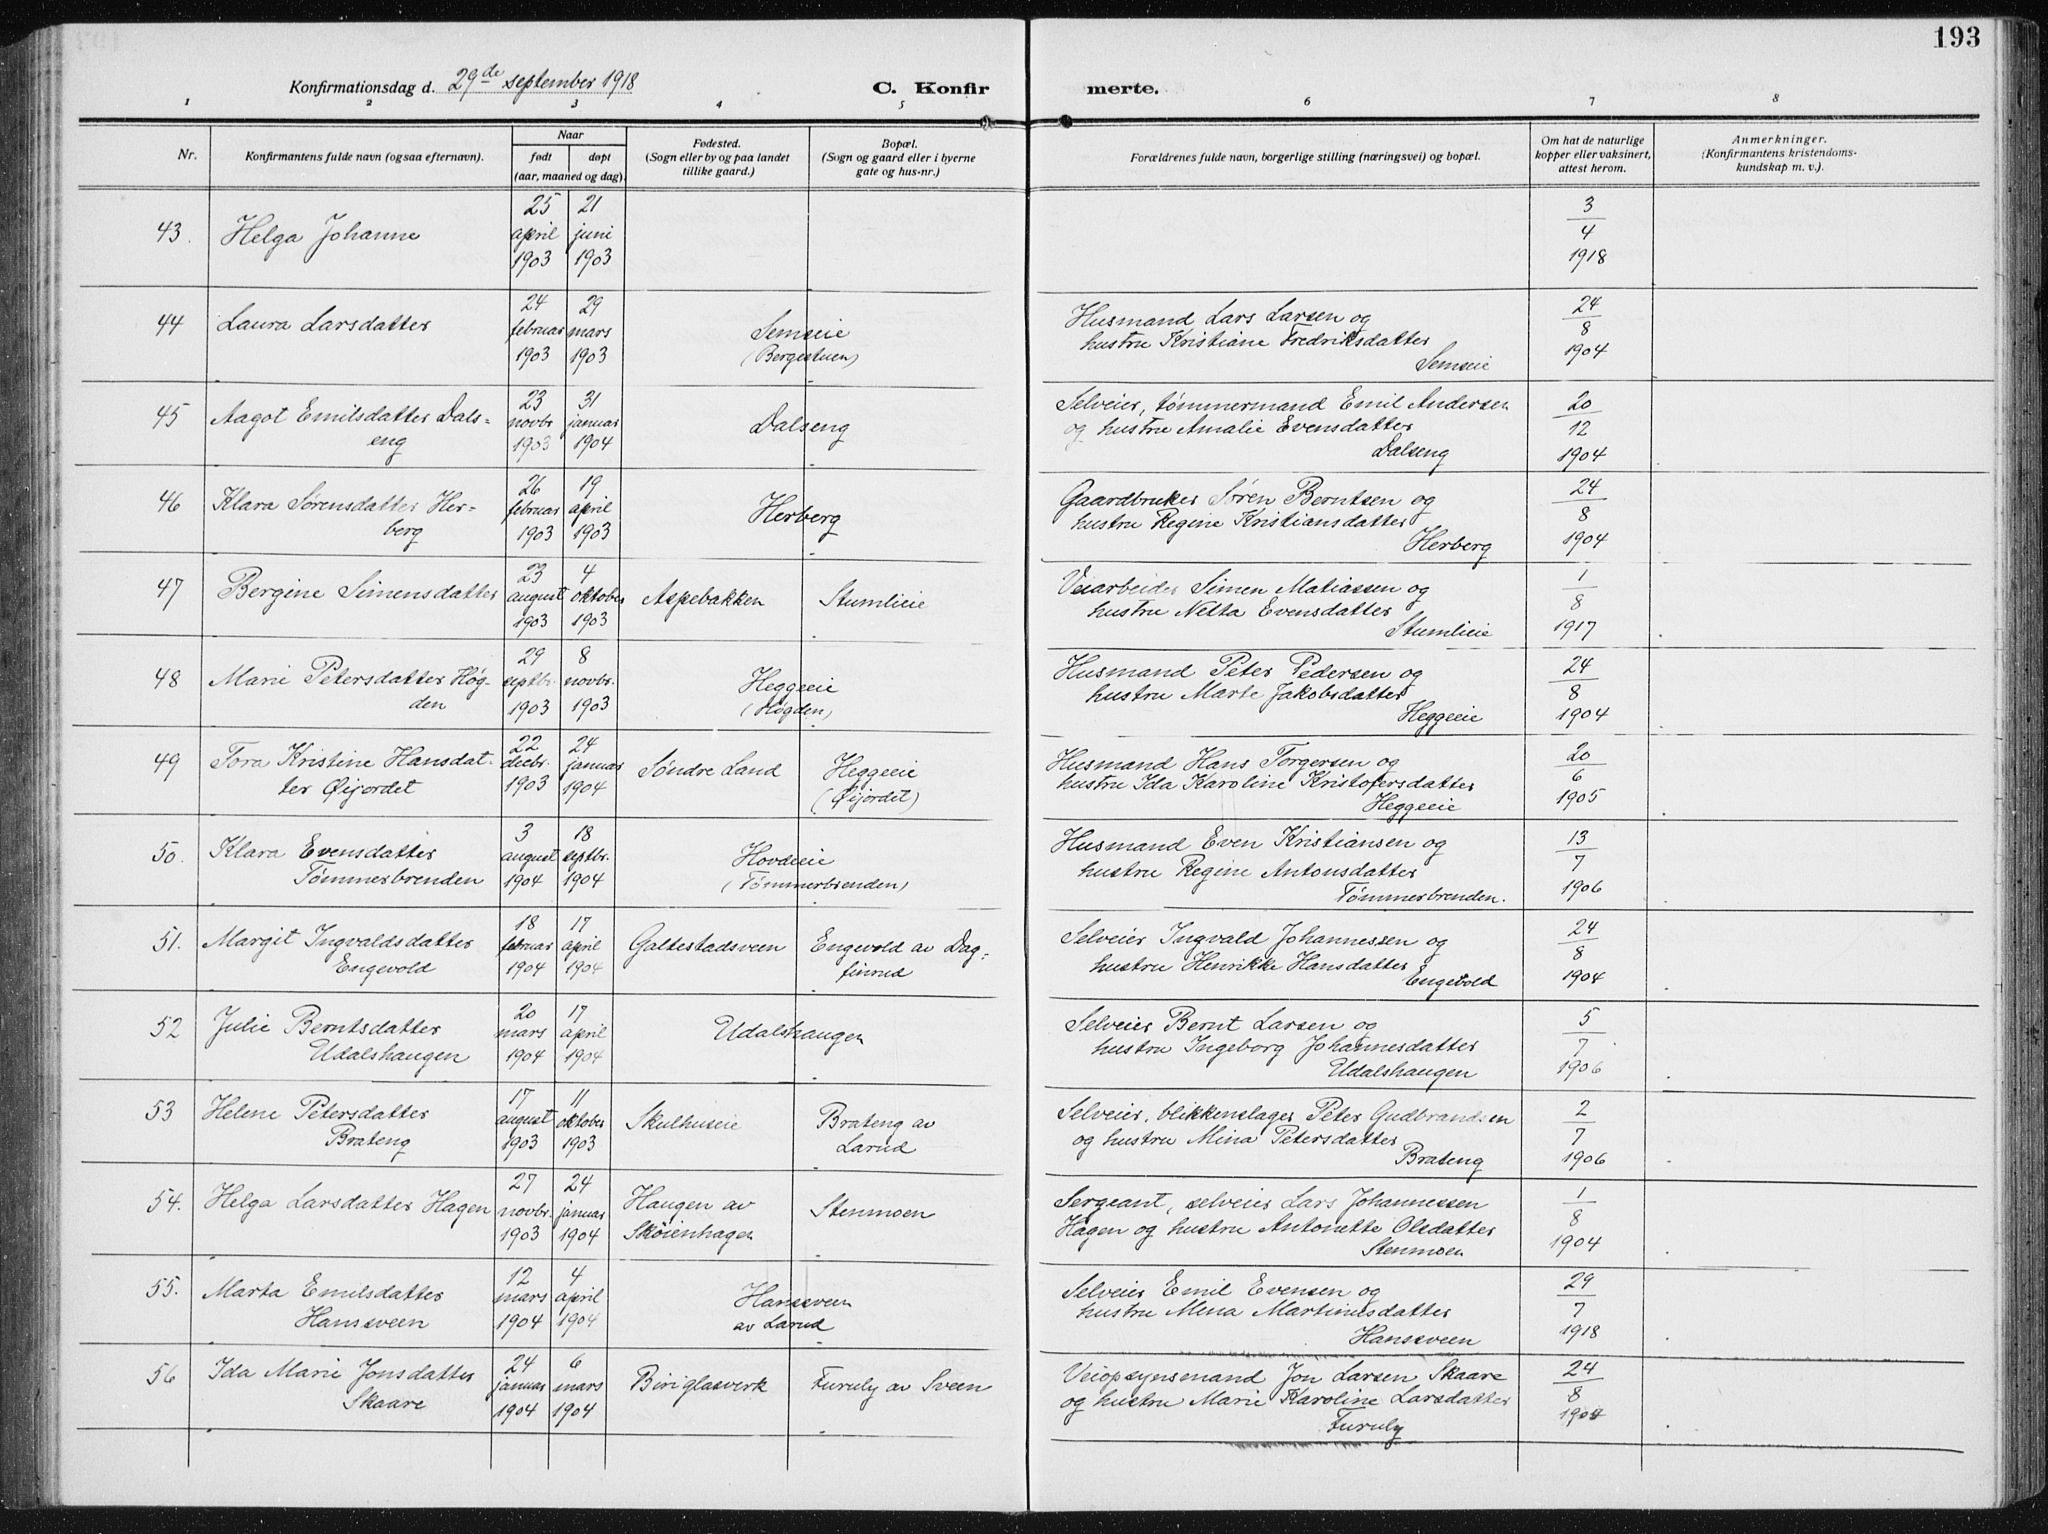 193
Konfirmationsdag d. 29de september 1918
C. Konfir
merte.
1 2 3 4 5 6 7 8
Nr.
Konfirmantens fulde navn (og saa efternavn).
Naar
født døpt
(aar, maaned og dag).
Fødested.
(Sogn eller by og paa landet
tillike gaard.)
Bopæl.
(Sogn og gaard eller i byerne
gate og hus-nr.)
Forældrenes fulde navn, borgerlige stilling (næringsvei) og bopæl.
Om hat de naturlige
kopper eller vaksinert,
attest herom.
Anmerkninger.
(Konfirmantens kristendoms-
kundskap m. v.).
43. Helga Johanne
25 april 1903
21 juni 1903
3/4 1918
44 Laura Larsdatter
24 februar 1903
29 mars 1903
Semseie
(Bergestuen)
Husmand Lars Larsen og
hustru Kristiane Fredriksdatter
Semseie
24/8 1904
45 Aagot Emilsdatter Dals=
eng
23 novbr. 1903
31 januar 1904
Dalseng
Selveier, tømmermand Emil Andersen
og hustru Amalie Evensdatter
Dalseng
20/12 1904
46 Klara Sørensdatter Her-
berg
26 februar 1903
19 april 1903
Herberg
Gaardbruker Søren Berntsen og
hustru Regine Kristiansdatter
Herberg
24/8 1904
47 Bergine Simensdatter
23 august 1903
4 oktober 1903
Aspebakken
Stumlieie
Veiarbeider Simen Matiassen og
hustru Netta Evensdatter
Stumlieie
1/8 1917
48 Marie Petersdatter Høg-
den
29 septbr. 1903
8 novbr. 1903
Heggeeie
(Høgden)
Husmand Peter Pedersen og
hustru Marte Jakobsdatter
Heggeeie
24/8 1904
49 Tora Kristine Hansdat-
ter Øijordet
22 decbr. 1903
24 januar 1904
Søndre Land
Heggeeie
(Øijordet)
Husmand Hans Torgersen og
hustru Ida Karoline Kristofersdatter
Heggeeie
20/6 1905
50. Klara Evensdatter
Tømmerbrenden
3 august 1904
18 septbr. 1904
Hovdeeie
(Tømmerbrenden)
Husmand Even Kristiansen og
hustru Regine Antonsdatter
Tømmerbrenden.
13/7 1906
51. Margit Ingvaldsdatter
Engevold
18 februar 1904
17 april 1904
Galtestadsveen
Engevold av Dag-
finrud
Selveier Ingvald Johannessen og
hustru Henrikke Hansdatter
Engevold
24/8 1904
52 Julie Berntsdatter
Udalshaugen
20 mars 1904
17 april 1904
Udalshaugen
Selveier Bernt Larsen og
hustru Ingeborg Johannesdatter
Udalshaugen
5/7 1906
53 Helene Petersdatter
Brateng
17 august 1903
11 oktober 1903
Skulhuseie
Brateng av
Larud
Selveier, blikkenslager Peter Gudbrandsen
og hustru Mina Petersdatter
Brateng
2/7 1906
54. Helga Larsdatter Hagen
27 novbr. 1903
24 januar 1904
Haugen av
Skøienhagen
Stenmoen
Sergeant, selveier Lars Johannessen
Hagen og hustru Antonette Olsdatter
Stenmoen
1/8 1904
55. Marta Emilsdatter
Hanssveen
12 mars 1904
4 april 1904
Hanssveen
av Larud
Selveier Emil Evensen og
hustru Mina Martinusdatter
Hanssveen
29/7 1918
56 Ida Marie Jonsdatter
Skaare
24 januar 1904
6 mars 1904
Biriglasverk
Furuly av Sveen
Veiopsynsmand Jon Larsen Skaare
og hustru Marie Karoline Larsdatter
Furuly
24/8 1904